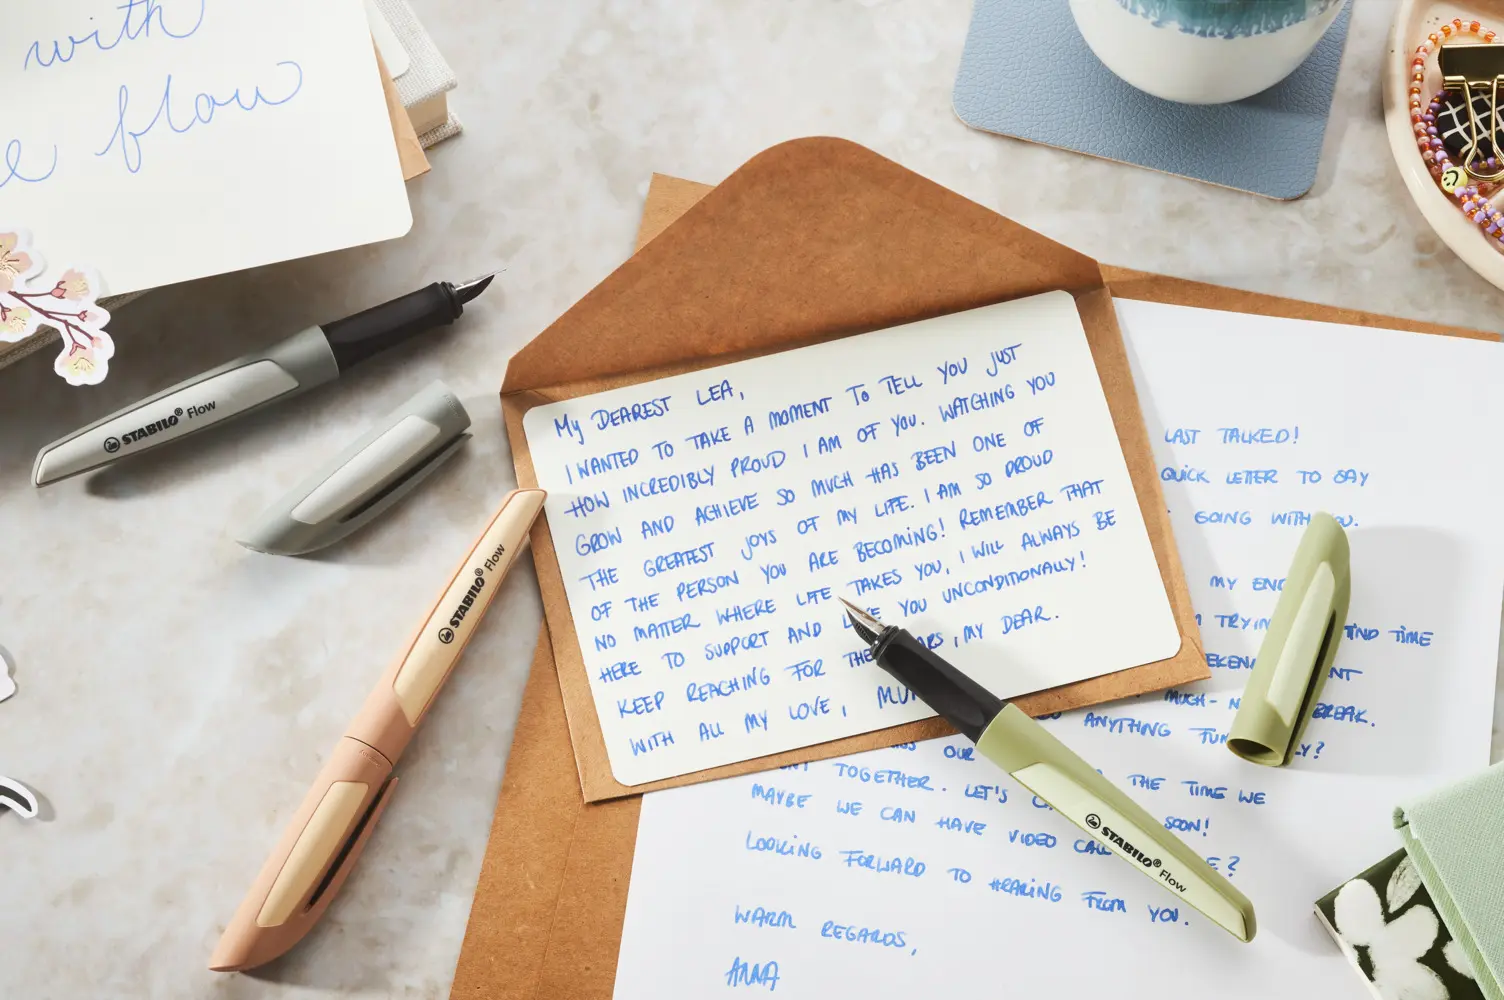 with
e flow
STABILO® Flow
STABILO® Flow
MY DEAREST LEA,
I WANTED TO TAKE A MOMENT TO TELL YOU JUST
HOW INCREDIBLY PROUD I AM OF YOU. WATCHING YOU
GROW AND ACHIEVE SO MUCH HAS BEEN ONE OF
THE GREATEST JOYS OF MY LIFE. I AM SO PROUD
OF THE PERSON YOU ARE BECOMING! REMEMBER THAT
NO MATTER WHERE LIFE TAKES YOU, I WILL ALWAYS BE
HERE TO SUPPORT AND YOU UNCONDITIONALLY!
KEEP REACHING FOR THE , MY DEAR.
WITH ALL MY LOVE,
LAST TALKED!
QUICK LETTER TO SAY
GOING WITH
MY
FIND TIME
MUCH- BREAK.
ANYTHING
OUR THE TIME WE
TOGETHER. LET'S SOON!
MAYBE WE CAN HAVE VIDEO
LOOKING FORWARD TO HEARING FROM YOU.
WARM REGARDS,
ANNA
STABILO® Flow